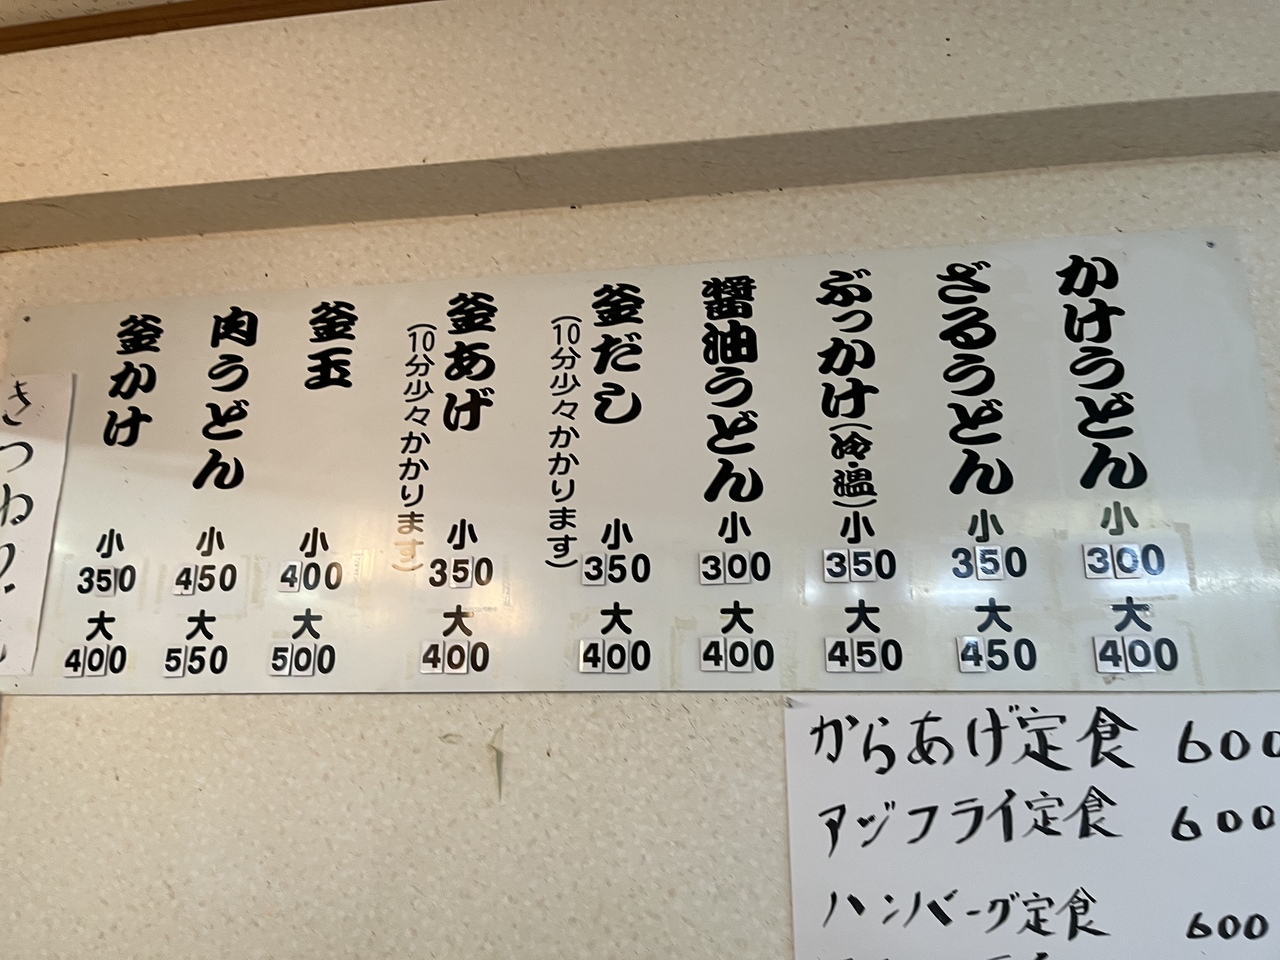 かけうどん
小
300
大
400
ざるうどん
小
350
大
450
ぶっかけ(冷・温)
小
350
大
450
醤油うどん
小
300
大
400
釜だし
(10分少々かかります)
小
350
大
400
釜あげ
(10分少々かかります)
小
350
大
400
釜玉
小
400
大
500
肉うどん
小
450
大
550
釜かけ
小
350
大
400
きつね
からあげ定食 600
アジフライ定食 600
ハンバーグ定食 600